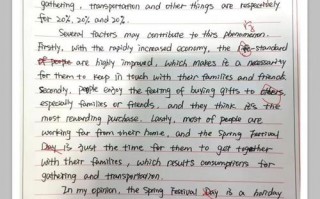 gathering, transportation and other things are respectively
for 20%, 20% and 20%.
Several factors may contribute to this phenomenon.
Firstly, with the rapidly increased economy, the life-standard
of people are highly improved, which makes is a necessarity
for them to keep in touch with their families and friends.
Secondly, people enjoy the feeling of buying gifts to others,
especially families or friends, and they think it's the
most rewarding purchase. Lastly, most of people are
working far from their home, and the Spring Festival
Day is just the time for them to get together
with their families, which results consumptions for
gathering and transportation.
In my opinion, the Spring Festival Day is a holiday